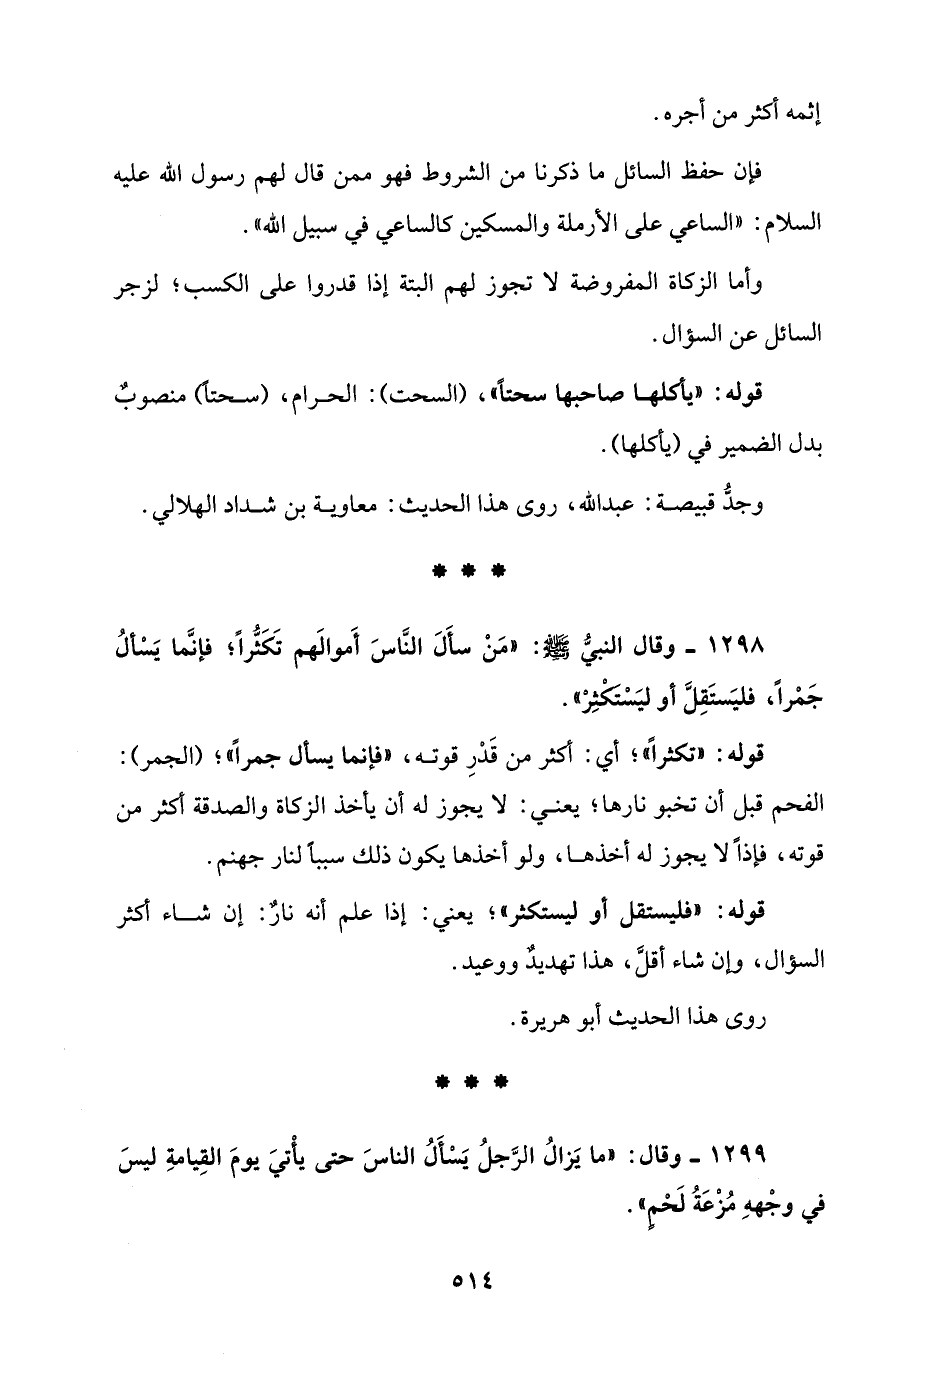 إثمه أكثر من أجره.
فإن حفظ السائل ما ذكرنا من الشروط فهو ممن قال لهم رسول الله عليه
السلام: «الساعي على الأرملة والمسكين كالساعي في سبيل الله».
وأما الزكاة المفروضة لا تجوز لهم البتة إذا قدروا على الكسب؛ لزجر
السائل عن السؤال.
قوله: «يأكلها صاحبها سحتاً»، (السحت): الحرام، (سحتاً) منصوبٌ
بدل الضمير في (يأكلها).
وجدُّ قبيصة: عبدالله، روى هذا الحديث: معاوية بن شداد الهلالي.
* * *
١٢٩٨ - وقال النبيُّ ﷺ: «مَنْ سأَلَ النَّاسَ أَموالَهم تَكَثُّراً؛ فإنَّما يَسْألُ
جَمْراً، فليَستَقِلَّ أو ليَسْتَكْثِرْ».
قوله: «تكثراً»؛ أي: أكثر من قَدْرِ قوته، «فإنما يسأل جمراً»؛ (الجمر):
الفحم قبل أن تخبو نارها؛ يعني: لا يجوز له أن يأخذ الزكاة والصدقة أكثر من
قوته، فإذاً لا يجوز له أخذها، ولو أخذها يكون ذلك سبباً لنار جهنم.
قوله: «فليستقل أو ليستكثر»؛ يعني: إذا علم أنه نارٌ: إن شاء أكثر
السؤال، وإن شاء أقلَّ، هذا تهديدٌ ووعيد.
روى هذا الحديث أبو هريرة.
* * *
١٢٩٩ - وقال: «ما يَزالُ الرَّجلُ يَسْأَلُ الناسَ حتى يأْتيَ يومَ القِيامةِ ليسَ
في وجْههِ مُزْعَةُ لَحْمٍ».
٥١٤